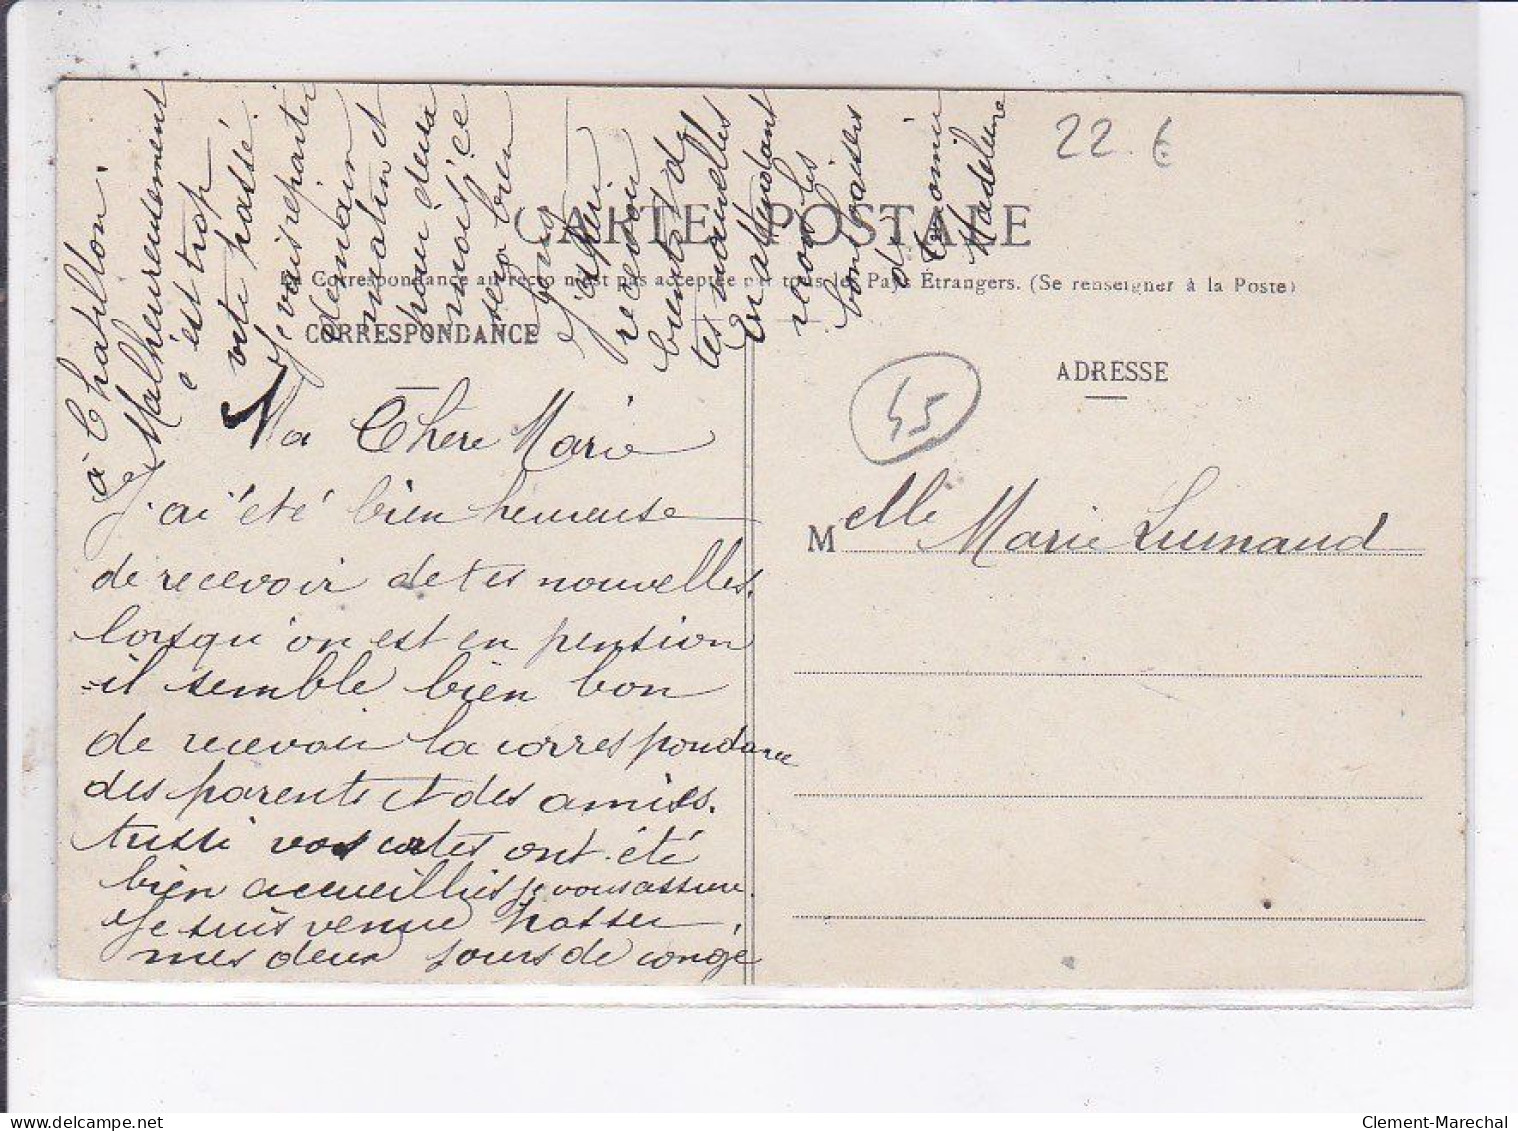 CARTE POSTALE
La Correspondance au recto n'est pas acceptée par tous les Pays Étrangers. (Se renseigner à la Poste)
CORRESPONDANCE
Ma Chère Marie
J'ai été bien heureuse
de recevoir de tes nouvelles.
lorsqu'on est en pension
il semble bien bon
de recevoir la correspondance
des parents et des amies.
Aussi vos cartes ont été
bien accueillies je vous assure.
Je suis venue passer
mes deux jours de congé
à Chatillon.
Malheureusement
c'est trop
vite passé.
Je vais repartir
demain
matin et
pour deux
mois ce
sera bien
long
J'espère
recevoir
bientôt de
tes nouvelles
En attendant
reçois les
bons baisers
de
Madeleine
22.€
45
ADRESSE
Melle Marie
Clement-Marechal
delcampe.net